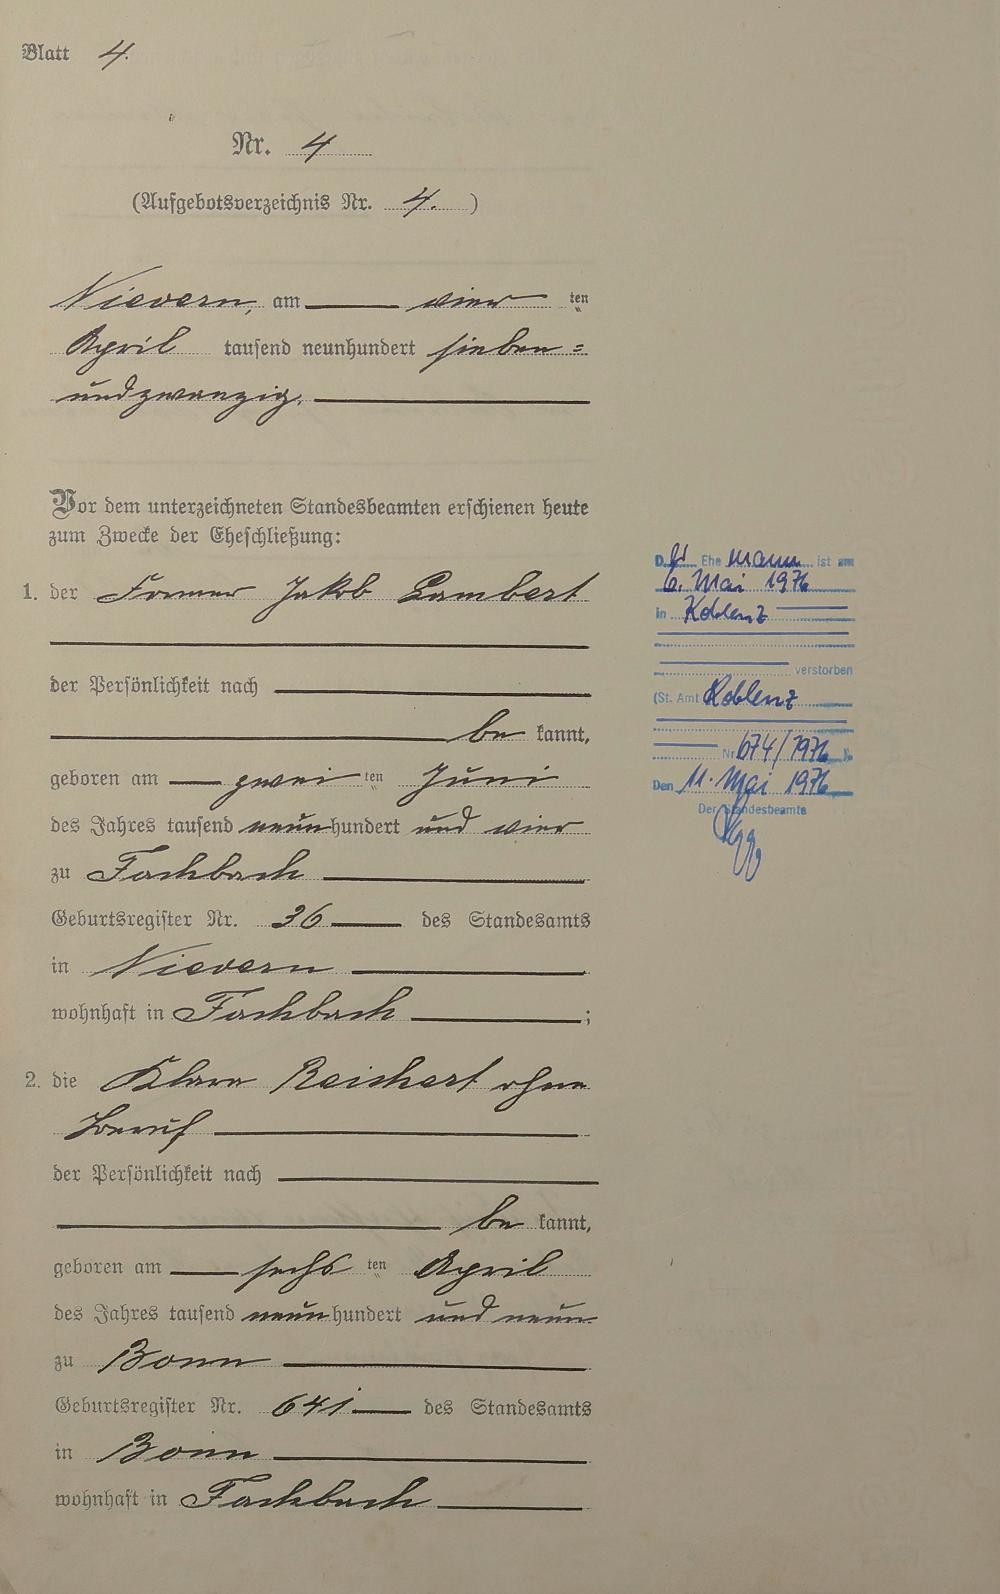 Blatt 4.
Nr. 4
(Aufgebotsverzeichnis Nr. 4.)
Nievern, am vier ten
April tausend neunhundert sieben=
undzwanzig.
Vor dem unterzeichneten Standesbeamten erschienen heute
zum Zwecke der Eheschließung:
1. der Former Jakob Lambert
der Persönlichkeit nach
be kannt,
geboren am zwei ten Juni
des Jahres tausend neunhundert und vier
zu Fachbach
Geburtsregister Nr. 36 des Standesamts
in Nievern
wohnhaft in Fachbach ;
2. die Klara Reichert ohne
Beruf
der Persönlichkeit nach
be kannt,
geboren am sechs ten April
des Jahres tausend neunhundert und neun
zu Bonn
Geburtsregister Nr. 641 des Standesamts
in Bonn
wohnhaft in Fachbach
Der Ehemann ist am
6. Mai 1976
in Koblenz
verstorben
(St. Amt Koblenz
Nr. 674/1976
Den 11. Mai 1976
Der Standesbeamte